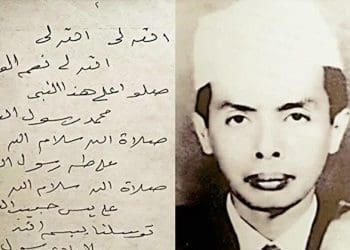 الله لى الله لى
الله لى نعم الو
صلوا على هذا النبى
محمد رسول ال
صلاة الله سلام الله
على طه رسول ال
صلاة الله سلام الله
على يس حبيب ال
توسلنا ببسم الله